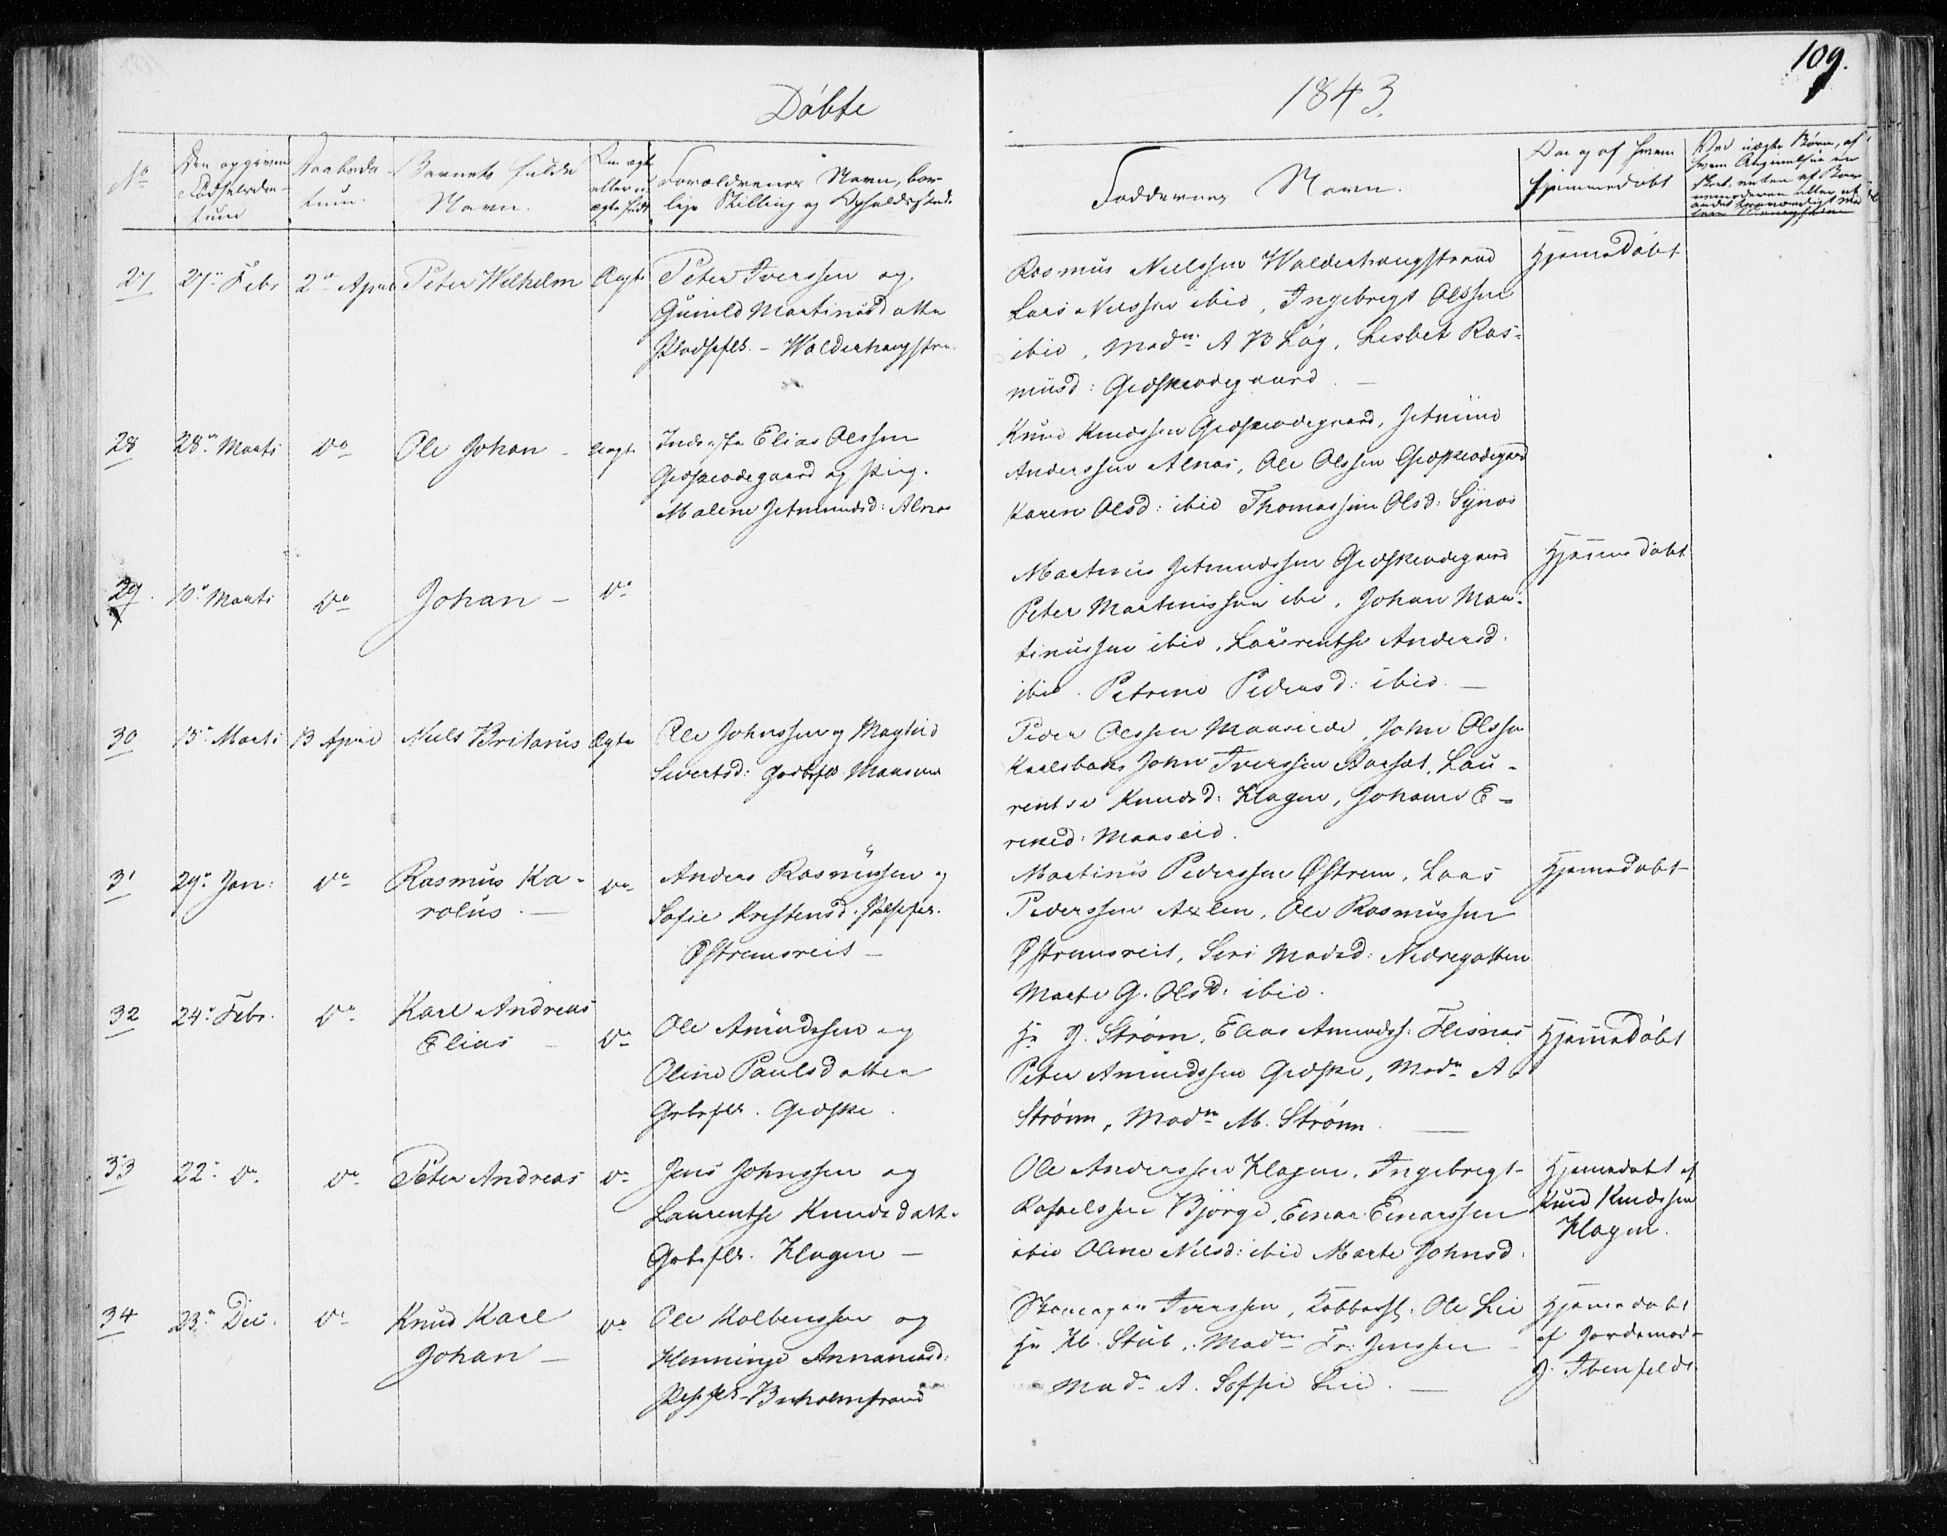 109.
Døbte
1843.
No
Den opgivne
Fødselsda-
tum
Daabsda-
tum.
Barnets fulde
Navn.
Om ægte
eller u-
ægte født
Forældrenes Navn, bor-
lige Stilling og Opholdssted.
Faddernes Navn.
Om og af hvem
hjemmedøbt
Ved uægte Børn, af
hvem Angivelsen er
skeet, enten af Bar-
nemoderen eller et
andet
27
27. Febr
2. April
Peter Wilhelm
Ægte
Peter Iverssen og
Gunild Martinusdatter
Pladsflk. - Walderhaugstra.
Rasmus Nielssen Walderhaugstrand
Lars Nilssen ibid, Ingebregt Olssen
ibid, Madm. A B Løg, Lisbet Ras-
musd: Gidskeødegaard. -
Hjemedøbt
28
28. Marti
do
Ole Johan -
Ægte
Inds. Elias Olssen
Gidskeødegaard og Pig.
Malene Jetmundsd: Alnæs
Knud Knudssen Gidskeødegaard, Jetmund
Anderssen Alnæs, Ole Olssen Gidskeødegaard
Karen Olsd: ibid Thomassine Olsd: Synæs
29.
10. Marti
do
Johan -
do
Martinus Jetmundssen Gidskeødegaard
Peter Martinussen ibi, Johan Mar-
tinussen ibid, Laurentse Andersd.
ibid. Petrine Pedersd: ibid. -
Hjemmedøbt
30
13. Marti
13 April
Niels Britanus
Ægte
Ole Johnssen og Magtild
Sivertsd: Gbrsflk. Maaseid
Peder Olssen Maaseide, John Olssen
Karlsbak John Iverssen Aarsæt, Lau-
rentse Knudsd: Hagen, Johanne E-
riksd: Maaseid.
31
29. Jan:
do
Rasmus Ka-
rolus. -
do
Anders Rasmussen og
Sofie Kristensd. Pladsflk.
Østremsreit -
Martinus Pederssen Østrem, Lars
Pederssen Axlen, Ole Rasmussen
Østremsreit, Siri Madsd: Nedregotten
Marte G. Olsd: ibid.
Hjemedøbt
32
24. Febr.
do
Karl Andreas
Elias -
do
Ole Amundssen og
Oline Paulsdatter
Gbrsflk. Gidske.
Hr J. Strøm, Elias Amunds: Flisnæs
Peter Amundssen Gidske, Madm A
Strøm, Madm M. Strøm. -
Hjemedøbt
33
22. do
do
Peter Andreas
do
Jens Johnssen og
Laurentse Knudsdatt.
Gbrsflk. Hagen -
Ole Anderssen Hagen, Ingebregt
Rafaelssen Bjørge, Einar Einarssen
ibid Oline Nilsd: ibid Marte Johnsd.
Hjemedøbt af
Knud Knudssen
Hagen.
34
23. Dec.
do
Knud Karl
Johan -
do
Ole Kolbenssen og
Henninge Annaniasd:
Psflk Buholmstrand
Skomager Iverssen, Kobbersl. Ole Lie
Hr Kl. Stub, Madm Fr: Jenssen -
Madm A. Soffie Lied. -
Hjemedøbt
af Jordemod-
J. Ibenfeldt